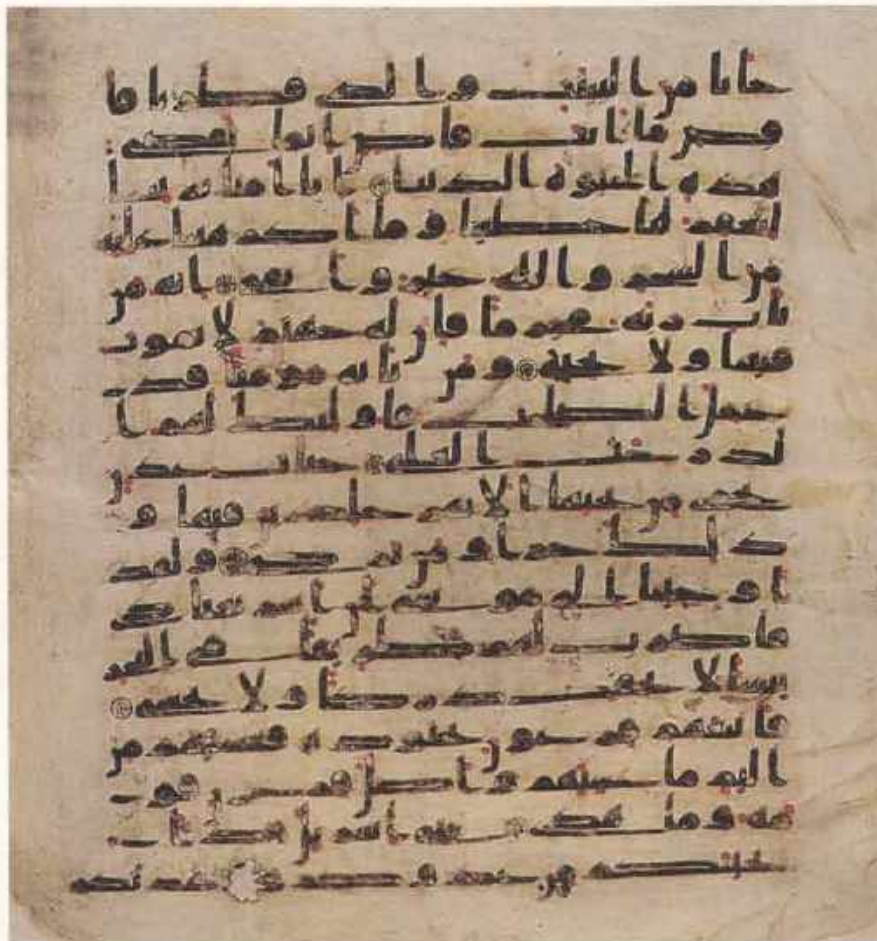 جانا من البينت والذي فطرنا فا
قض ما انت قاض انما تقضي
هذه الحيوة الدنيا انا امنا بربنا
ليغفر لنا خطينا وما اكرهتنا عليه
من السحر والله خير وابقى انه من
يات ربه مجرما فان له جهنم لا يموت
فيها ولا يحيى ومن ياته مومنا قد
عمل الصلحت فاولئك لهم ا
لدرجت العلى جنت عدن
تجري من تحتها الانهر خلدين فيها و
ذلك جزا من تزكى ولقد
اوحينا الى موسى ان اسر بعبادي
فاضرب لهم طريقا في البحر
يبسا لا تخف دركا ولا تخشى
فاتبعهم فرعون بجنوده فغشيهم من
اليم ما غشيهم واضل فرعون قو
مه وما هدى يبني اسريل قد ا
نجينكم من عدوكم ووعدنكم